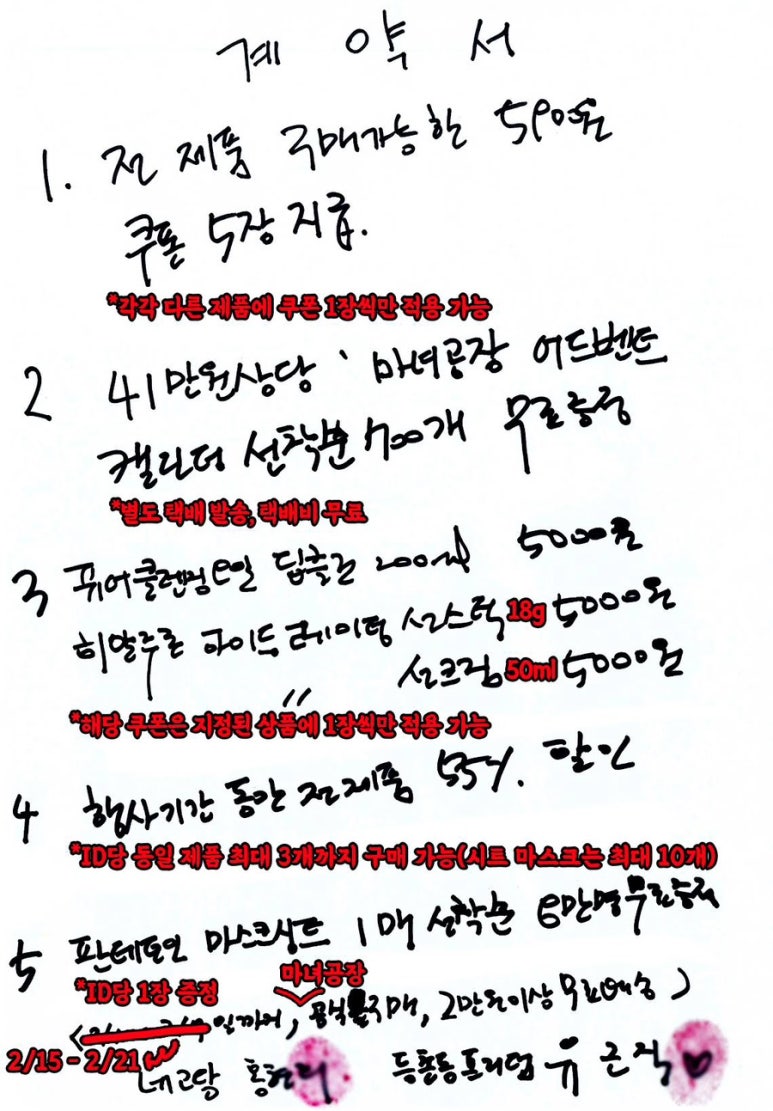 계 약 서
1. 전 제품 구매가능한 5900원
쿠폰 5장 지급.
*각각 다른 제품에 쿠폰 1장씩만 적용 가능
2 41만원상당 마녀공장 어드벤트
캘린더 선착순 700개 무료증정
*별도 택배 발송, 택배비 무료
3 퓨어클렌징오일 딥클린 200ml 5000원
히알루론 하이드레이팅 선스틱 18g 5000원
" 선크림 50ml 5000원
*해당 쿠폰은 지정된 상품에 1장씩만 적용 가능
4 행사기간 동안 전제품 55% 할인
*ID당 동일 제품 최대 3개까지 구매 가능(시트 마스크는 최대 10개)
5 판테토인 마스크시트 1매 선착순 6만명 무료증정
*ID당 1장 증정 마녀공장
일까지, 공식몰구매, 2만원이상 무료배송)
2/15 - 2/21
네고왕 홍현희 등촌동프리덤 유근직